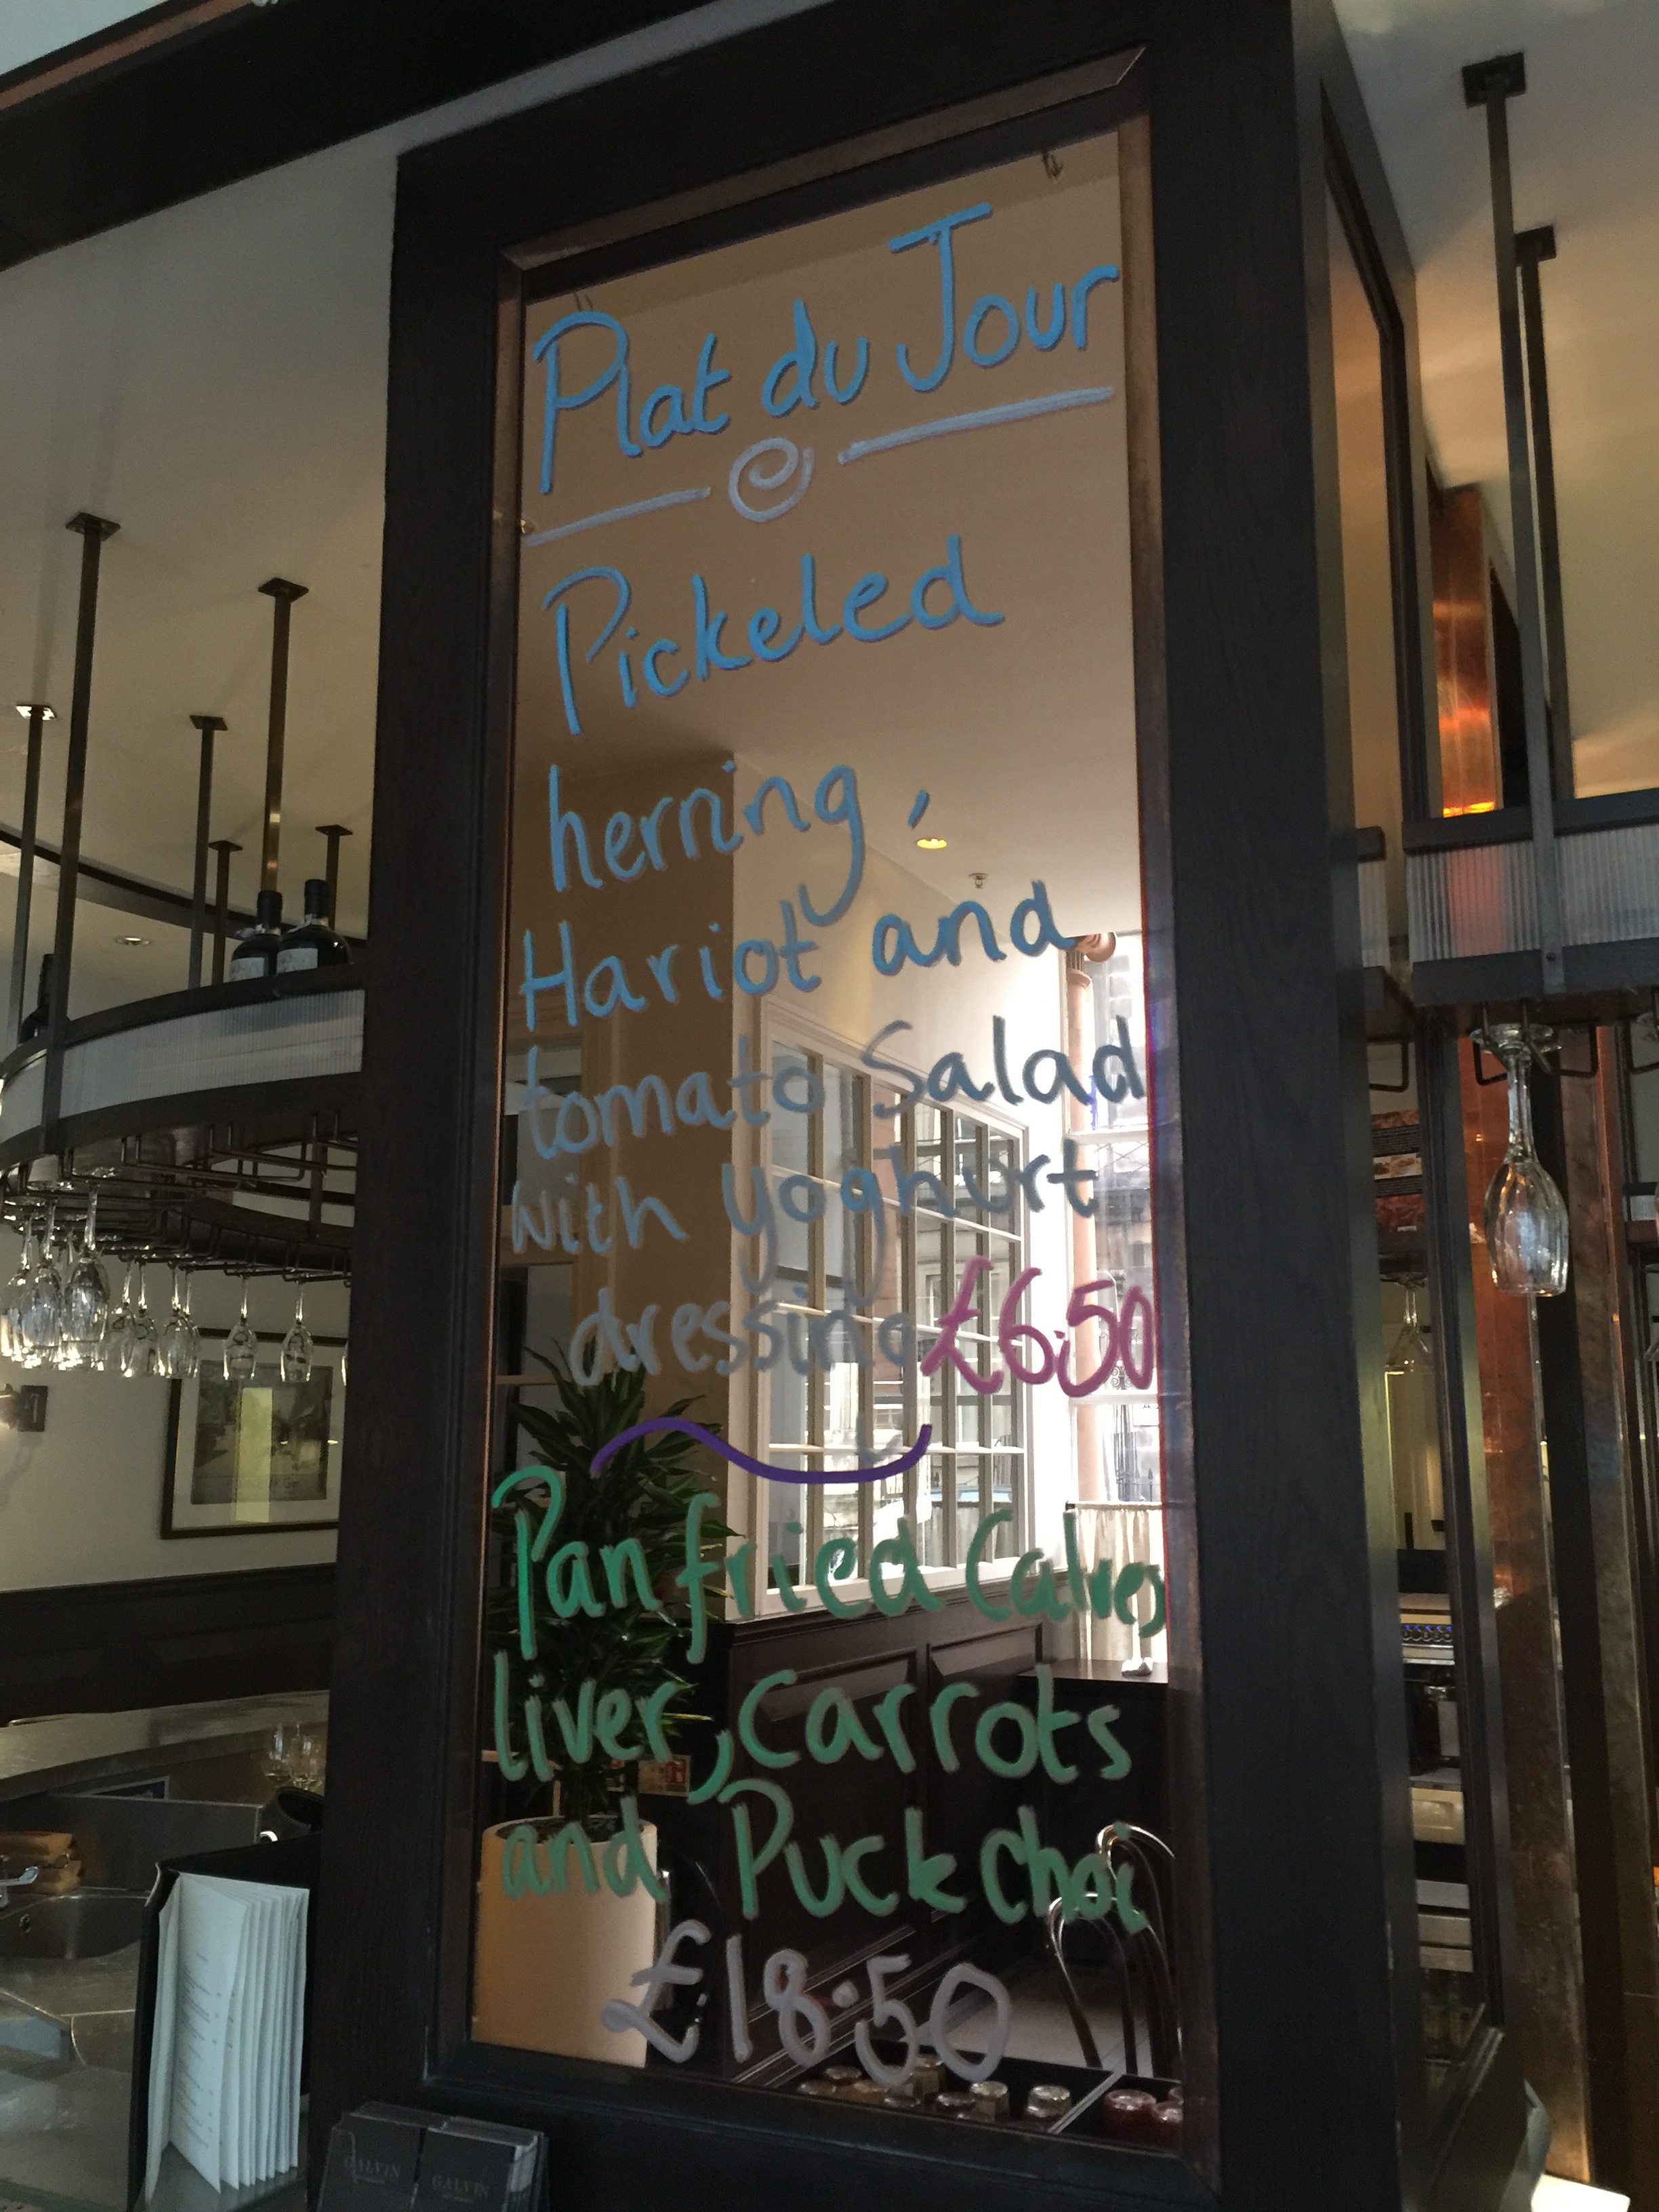 Plat du Jour
Pickeled
herring,
Hariot and
tomato Salad
with yoghurt
dressing £6.50
Pan fried Calves
liver, Carrots
and Puck choi
£18.50
GALVIN
GALVIN